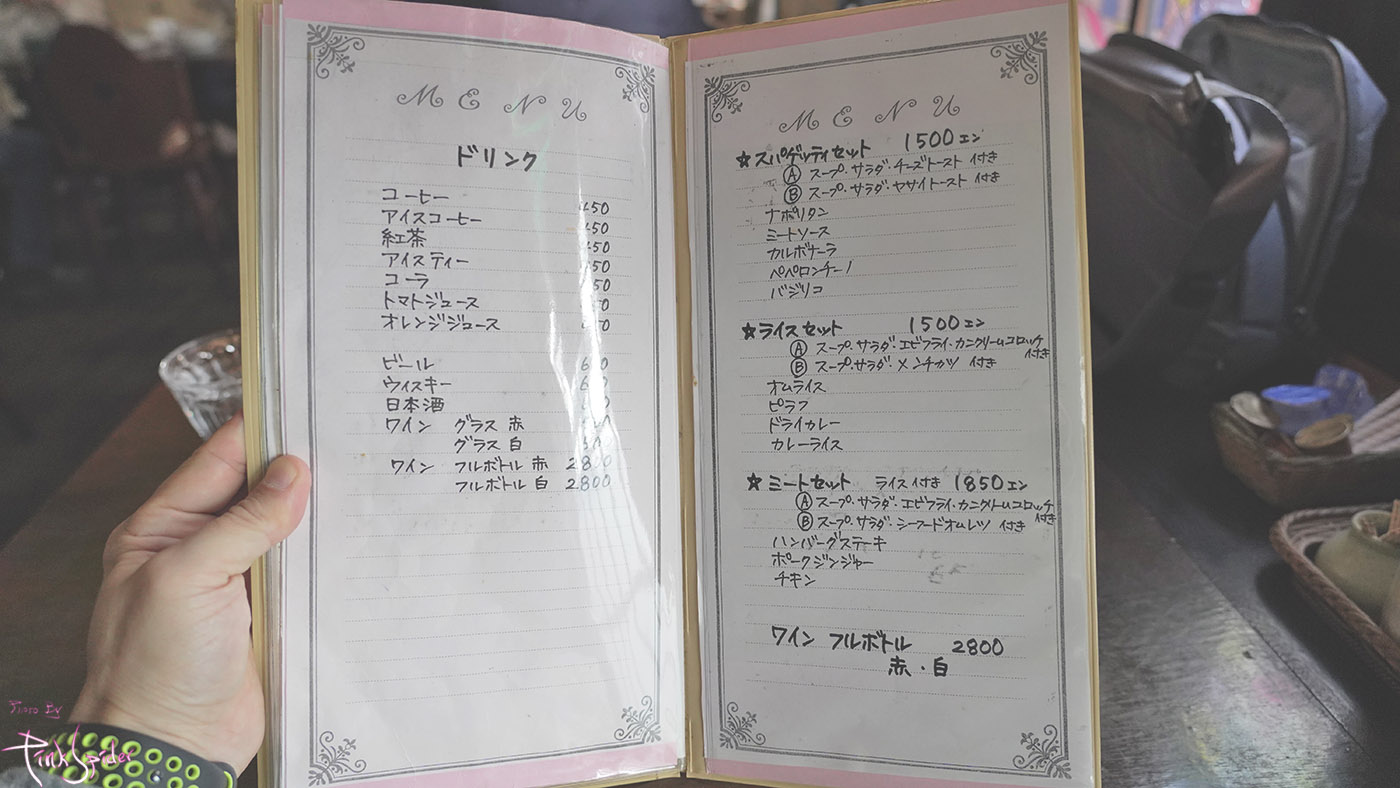 MENU
ドリンク
コーヒー 450
アイスコーヒー 450
紅茶 450
アイスティー
コーラ
トマトジュース
オレンジジュース
ビール
ウィスキー
日本酒
ワイン グラス 赤
グラス 白
ワイン フルボトル 赤 2800
フルボトル 白 2800
MENU
☆スパゲッティセット 1500エン
Ⓐ スープ・サラダ・チーズトースト 付き
Ⓑ スープ・サラダ・ヤサイトースト 付き
ナポリタン
ミートソース
カルボナーラ
ペペロンチーノ
バジリコ
☆ライスセット 1500エン
Ⓐ スープ・サラダ・エビフライ・カニクリームコロッケ付き
Ⓑ スープ・サラダ・メンチカツ 付き
オムライス
ピラフ
ドライカレー
カレーライス
☆ミートセット ライス付き 1850エン
Ⓐ スープ・サラダ・エビフライ・カニクリームコロッケ付き
Ⓑ スープ・サラダ・シーフードオムレツ 付き
ハンバーグステーキ
ポークジンジャー
チキン
ワイン フルボトル 2800
赤・白
Photo By
PinkSpider